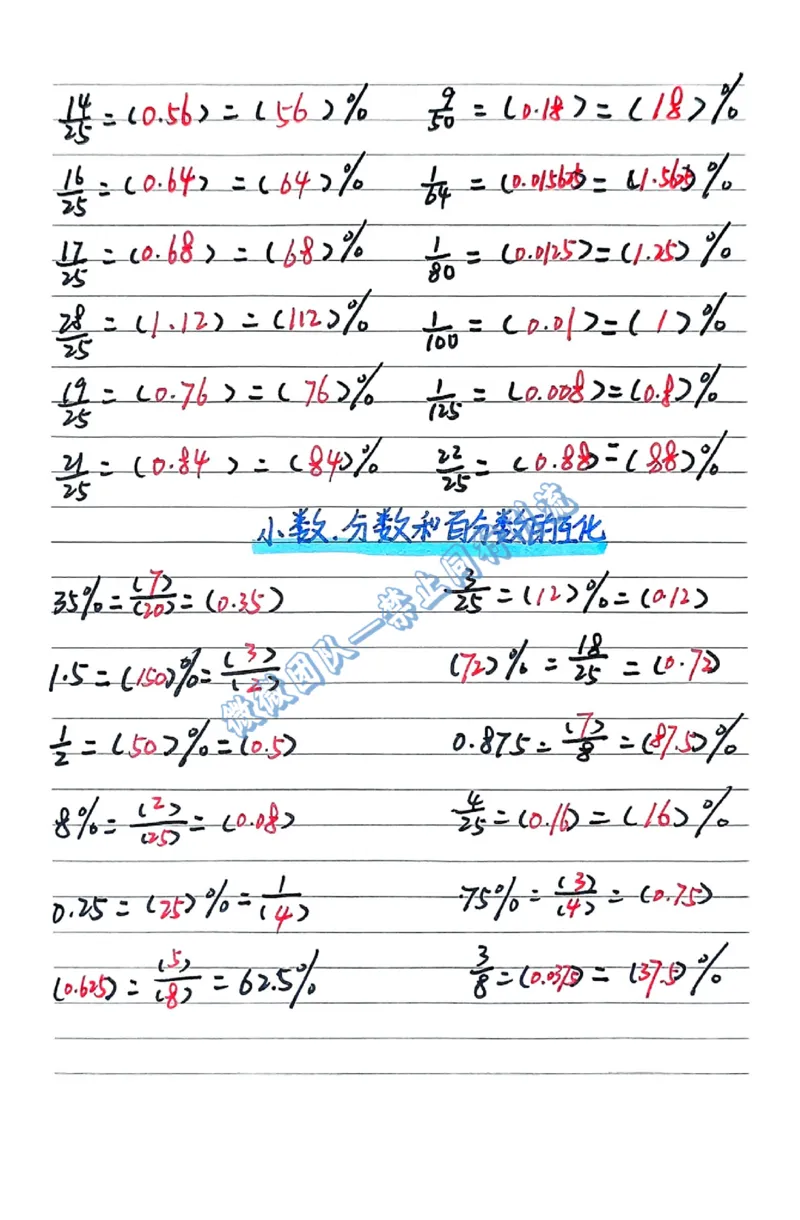 14/25 = (0.56) = (56)% 9/50 = (0.18) = (18)%
16/25 = (0.64) = (64)% 1/64 = (0.015625) = (1.5625)%
17/25 = (0.68) = (68)% 1/80 = (0.0125) = (1.25)%
28/25 = (1.12) = (112)% 1/100 = (0.01) = (1)%
19/25 = (0.76) = (76)% 1/125 = (0.008) = (0.8)%
21/25 = (0.84) = (84)% 22/25 = (0.88) = (88)%
小数、分数和百分数的互化
35% = (7)/(20) = (0.35) 3/25 = (12)% = (0.12)
1.5 = (150)% = (3)/(2) (72)% = 18/25 = (0.72)
1/2 = (50)% = (0.5) 0.875 = (7)/8 = (87.5)%
8% = (2)/(25) = (0.08) 4/25 = (0.16) = (16)%
0.25 = (25)% = 1/(4) 75% = (3)/(4) = (0.75)
(0.625) = (5)/(8) = 62.5% 3/8 = (0.0375) = (37.5)%
微微团队—禁止同行引流